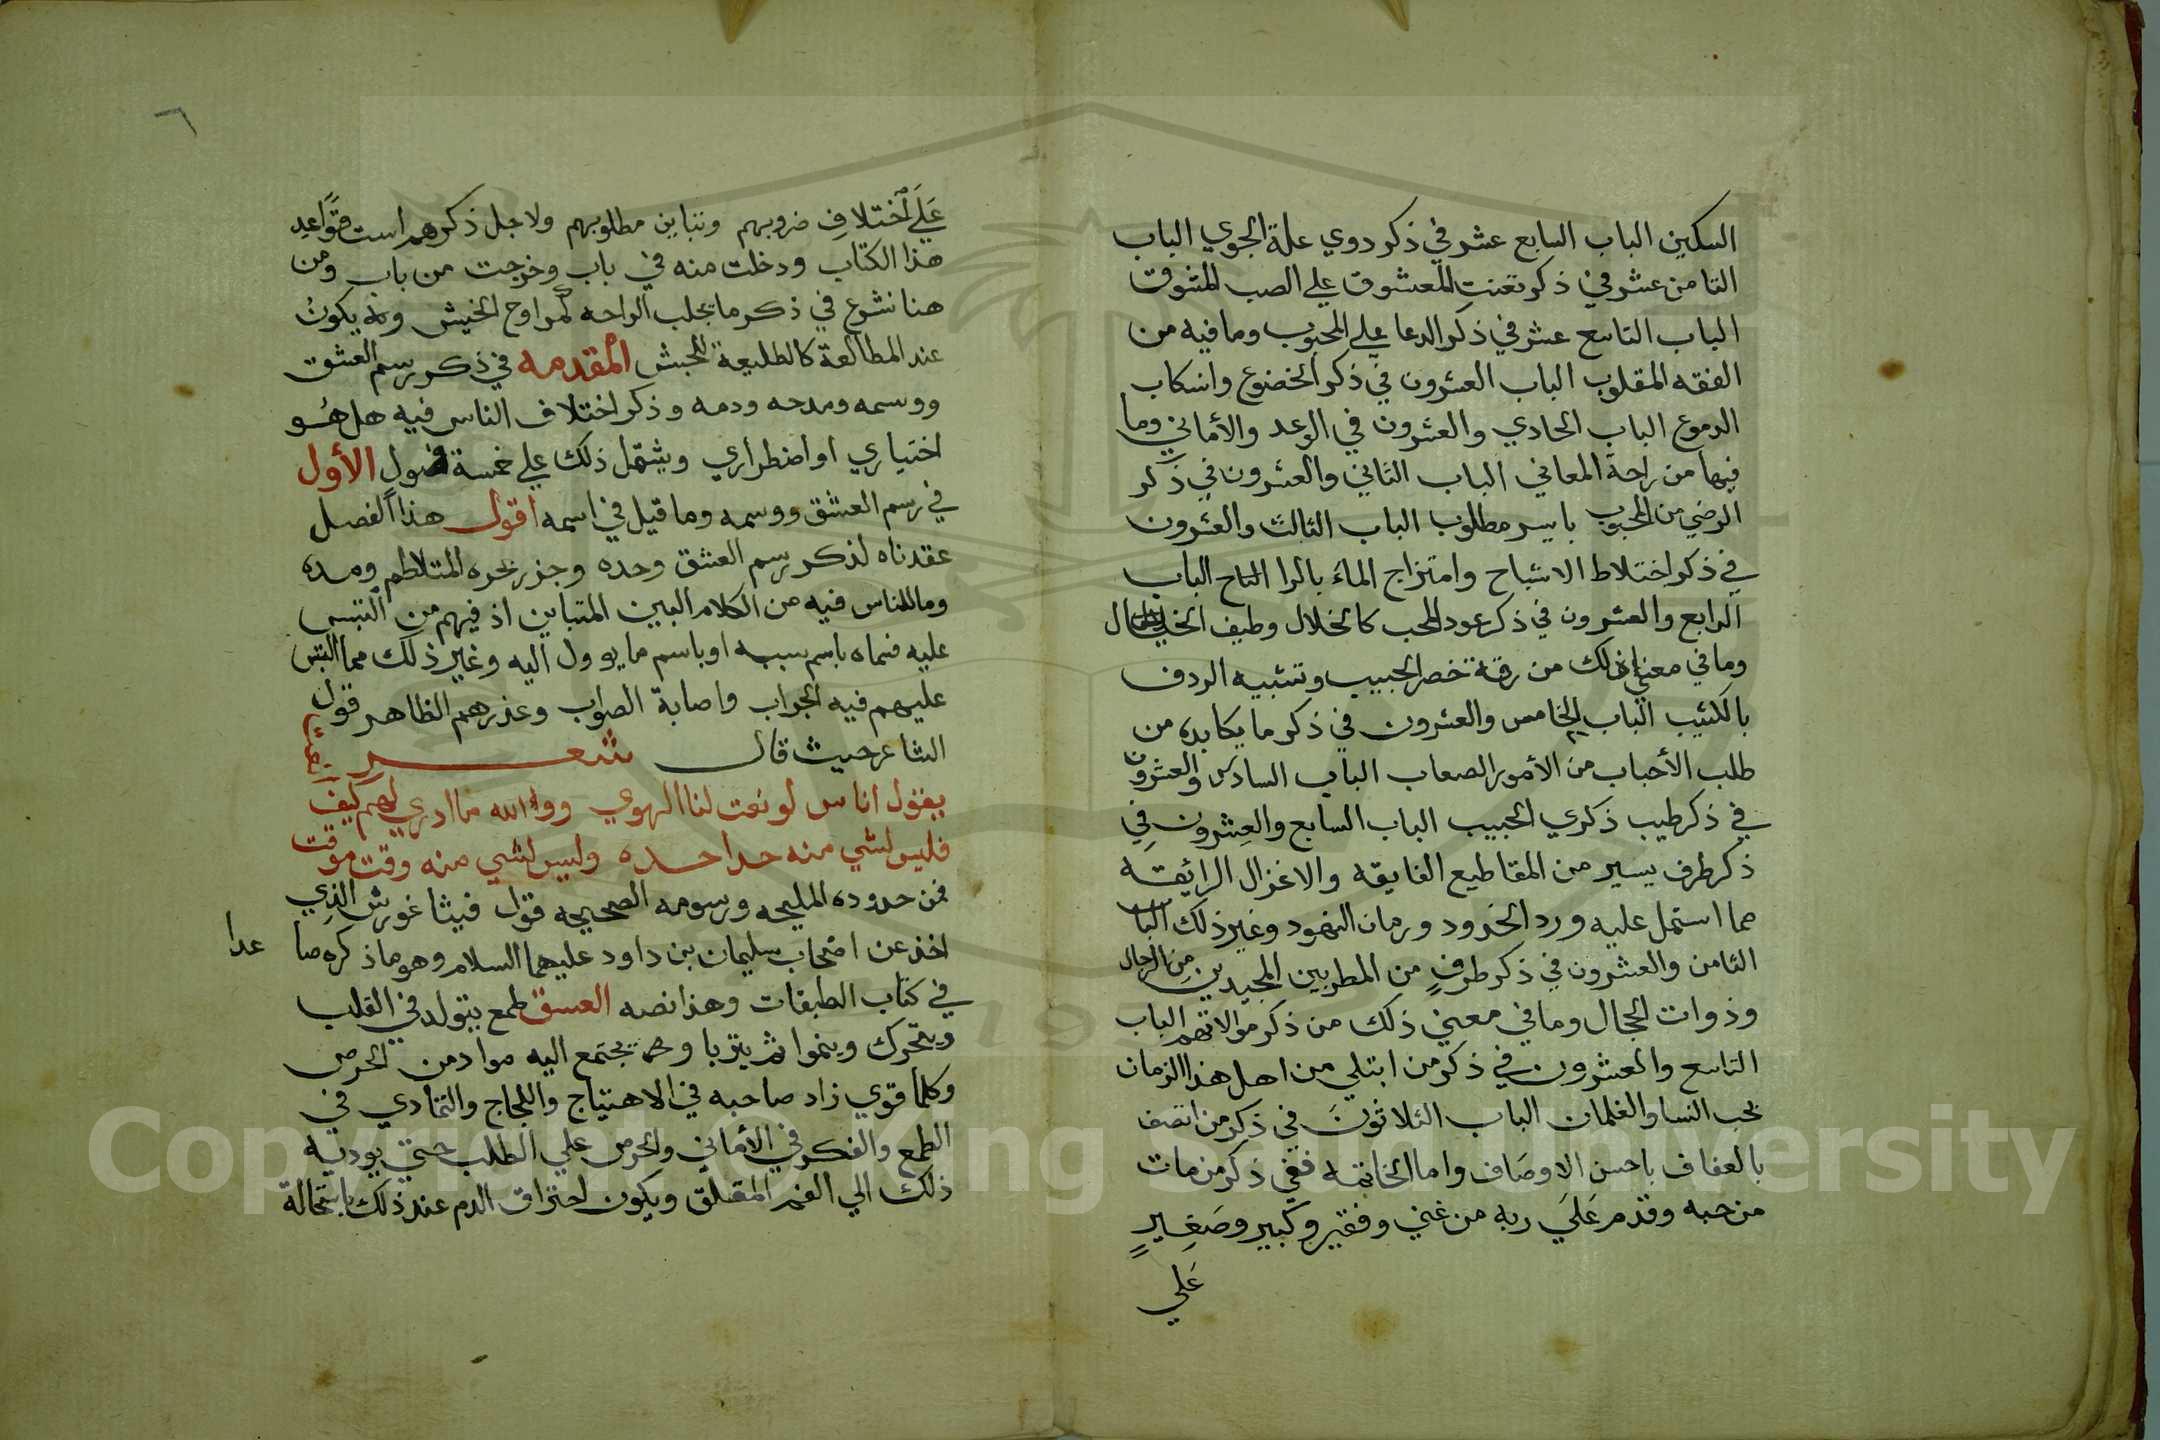 السكين الباب السابع عشر في ذكر دوي علة الجوي الباب
الثامن عشر في ذكر تعنت المعشوق علي الصب المشوق
الباب التاسع عشر في ذكر الدعا علي المحبوب وما فيه من
الفقه المقلوب الباب العشرون في ذكر الخضوع وانسكاب
الدموع الباب الحادي والعشرون في الوعد والأماني وما
فيها من راحة المعاني الباب الثاني والعشرون في ذكر
الرضي من المحبوب بايسر مطلوب الباب الثالث والعشرون
في ذكر اختلاط الاشباح وامتزاج الماء بالراح الباب
الرابع والعشرون في ذكر عود المحب كالخلال وطيف الخيال
وما في معني ذلك من رقة خصر الحبيب وتشبيه الردف
بالكثيب الباب الخامس والعشرون في ذكر ما يكابده من
طلب الأحباب من الأمور الصعاب الباب السادس والعشرون
في ذكر طيب ذكري الحبيب الباب السابع والعشرون في
ذكر طرف يسير من المقاطيع الفايقه والاغزال الرائيقه
مما اشتمل عليه ورد الخدود ورمان النهود وغير ذلك الباب
الثامن والعشرون في ذكر طرف من المطربين المجيدين من الرجال
وذوات الحجال وما في معني ذلك من ذكر موالاتهم الباب
التاسع والعشرون في ذكر من ابتلي من اهل هذا الزمان
بحب النسا والغلمان الباب الثلاثون في ذكر من اتصف
بالعفاف باحسن الاوصاف واما الخاتمه ففي ذكر من مات
من حبه وقدم علي ربه من غني وفقير وكبير وصغير
علي
٦
علي اختلاف ضروبهم وتباين مطلوبهم ولاجل ذكرهم است قواعد
هذا الكتاب ودخلت منه في باب وخرجت من باب ومن
هنا نشرع في ذكر ما يجلب الراحه كمراوح الخيش و يكون
عند المطالعة كالطليعة للجيش المقدمه في ذكر رسم العشق
ووسمه ومدحه ودمه وذكر اختلاف الناس فيه هل هو
اختياري او اضطراري ويشتمل ذلك علي خمسة فصول الأول
في رسم العشق ووسمه وما قيل في اسمه اقول هذا الفصل
عقدناه لذكر رسم العشق وحده وجزر بحره المتلاطم ومده
وما للناس فيه من الكلام البين المتباين اذ فيهم من التبس
عليه فسماه باسم سببه او باسم ما يوول اليه وغير ذلك مما التبس
عليهم فيه الجواب واصابة الصواب وعذرهم الظاهر قول
الشاعر حيث قال شعر
يقول اناس لو نعت لنا الهوي ووالله ما ادري لهم كيف
فليس لشي منه حدا حده وليس لشي منه وقت موقت
فمن حدوده المليحه ورسومه الصحيحه قول فيثاغورش الذي
اخذ عن اصحاب سليمان بن داود عليهما السلام وهو ما ذكره صا عدا
في كتاب الطبقات وهذا نصه العسق طمع يتولد في القلب
ويتحرك وينموا ثم يتربا و يجتمع اليه مواد من الحرص
وكلما قوي زاد صاحبه في الاهتياج واللجاج والتمادي في
الطمع والفكر في الأماني والحرص علي الطلب حتي يوديه
ذلك الي الغم المقلق ويكون احتراق الدم عند ذلك باستحالة
Copyright © King Saud University